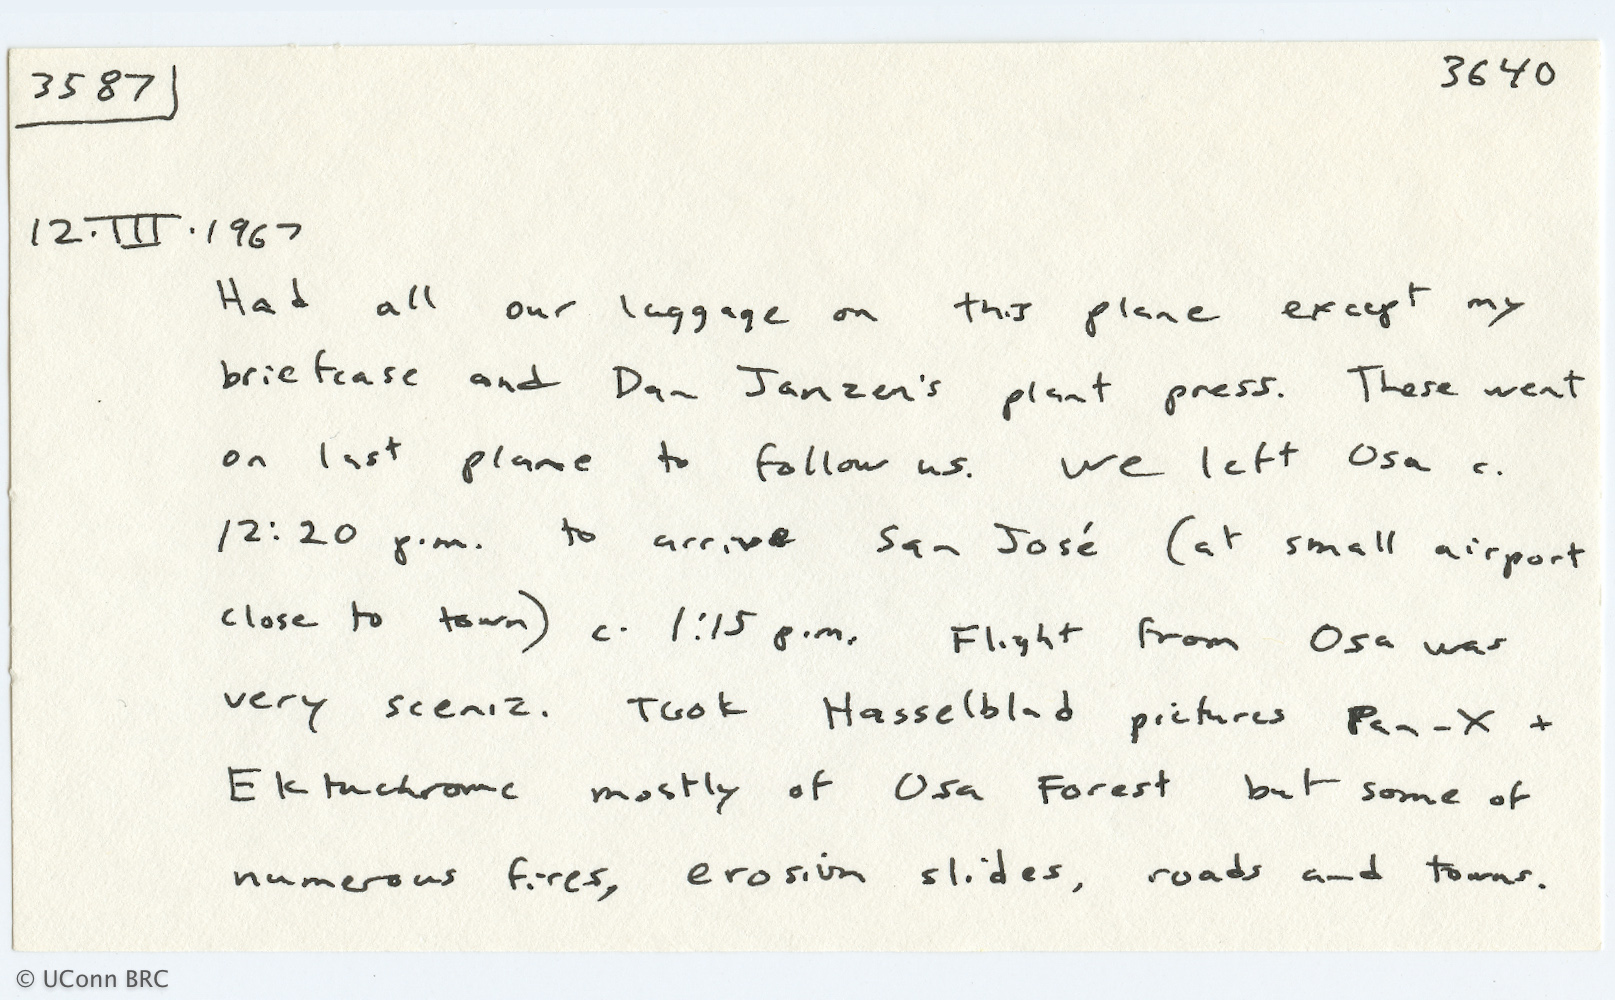 3587
3640
12.III.1967
Had all our luggage on this plane except my
briefcase and Dan Janzen's plant press. These went
on last plane to follow us. We left Osa c.
12:20 p.m. to arrive San José (at small airport
close to town) c. 1:15 p.m. Flight from Osa was
very scenic. Took Hasselblad pictures Pan-X +
Ektachrome mostly of Osa Forest but some of
numerous fires, erosion slides, roads and towns.
© UConn BRC